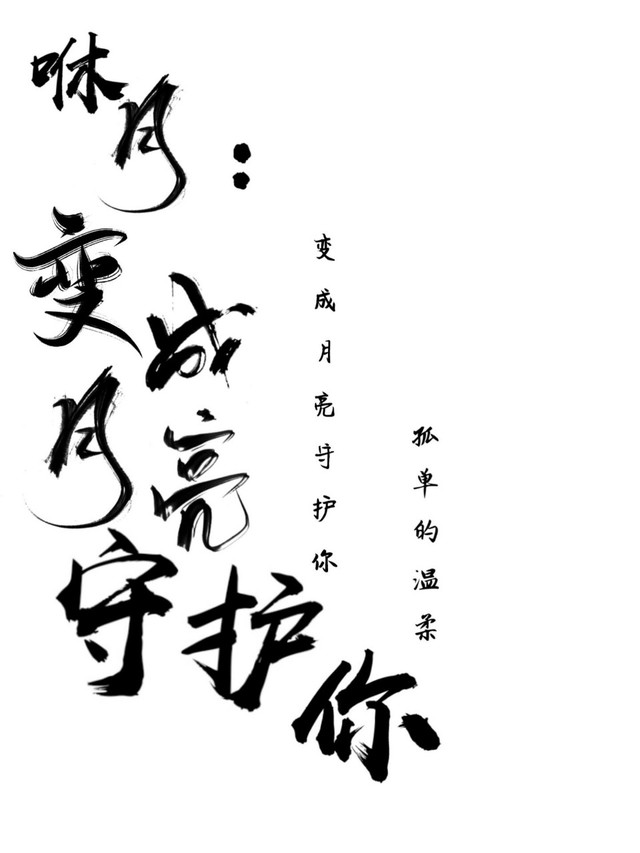 咻月：
变成
月亮
守护你
变成月亮守护你
孤单的温柔